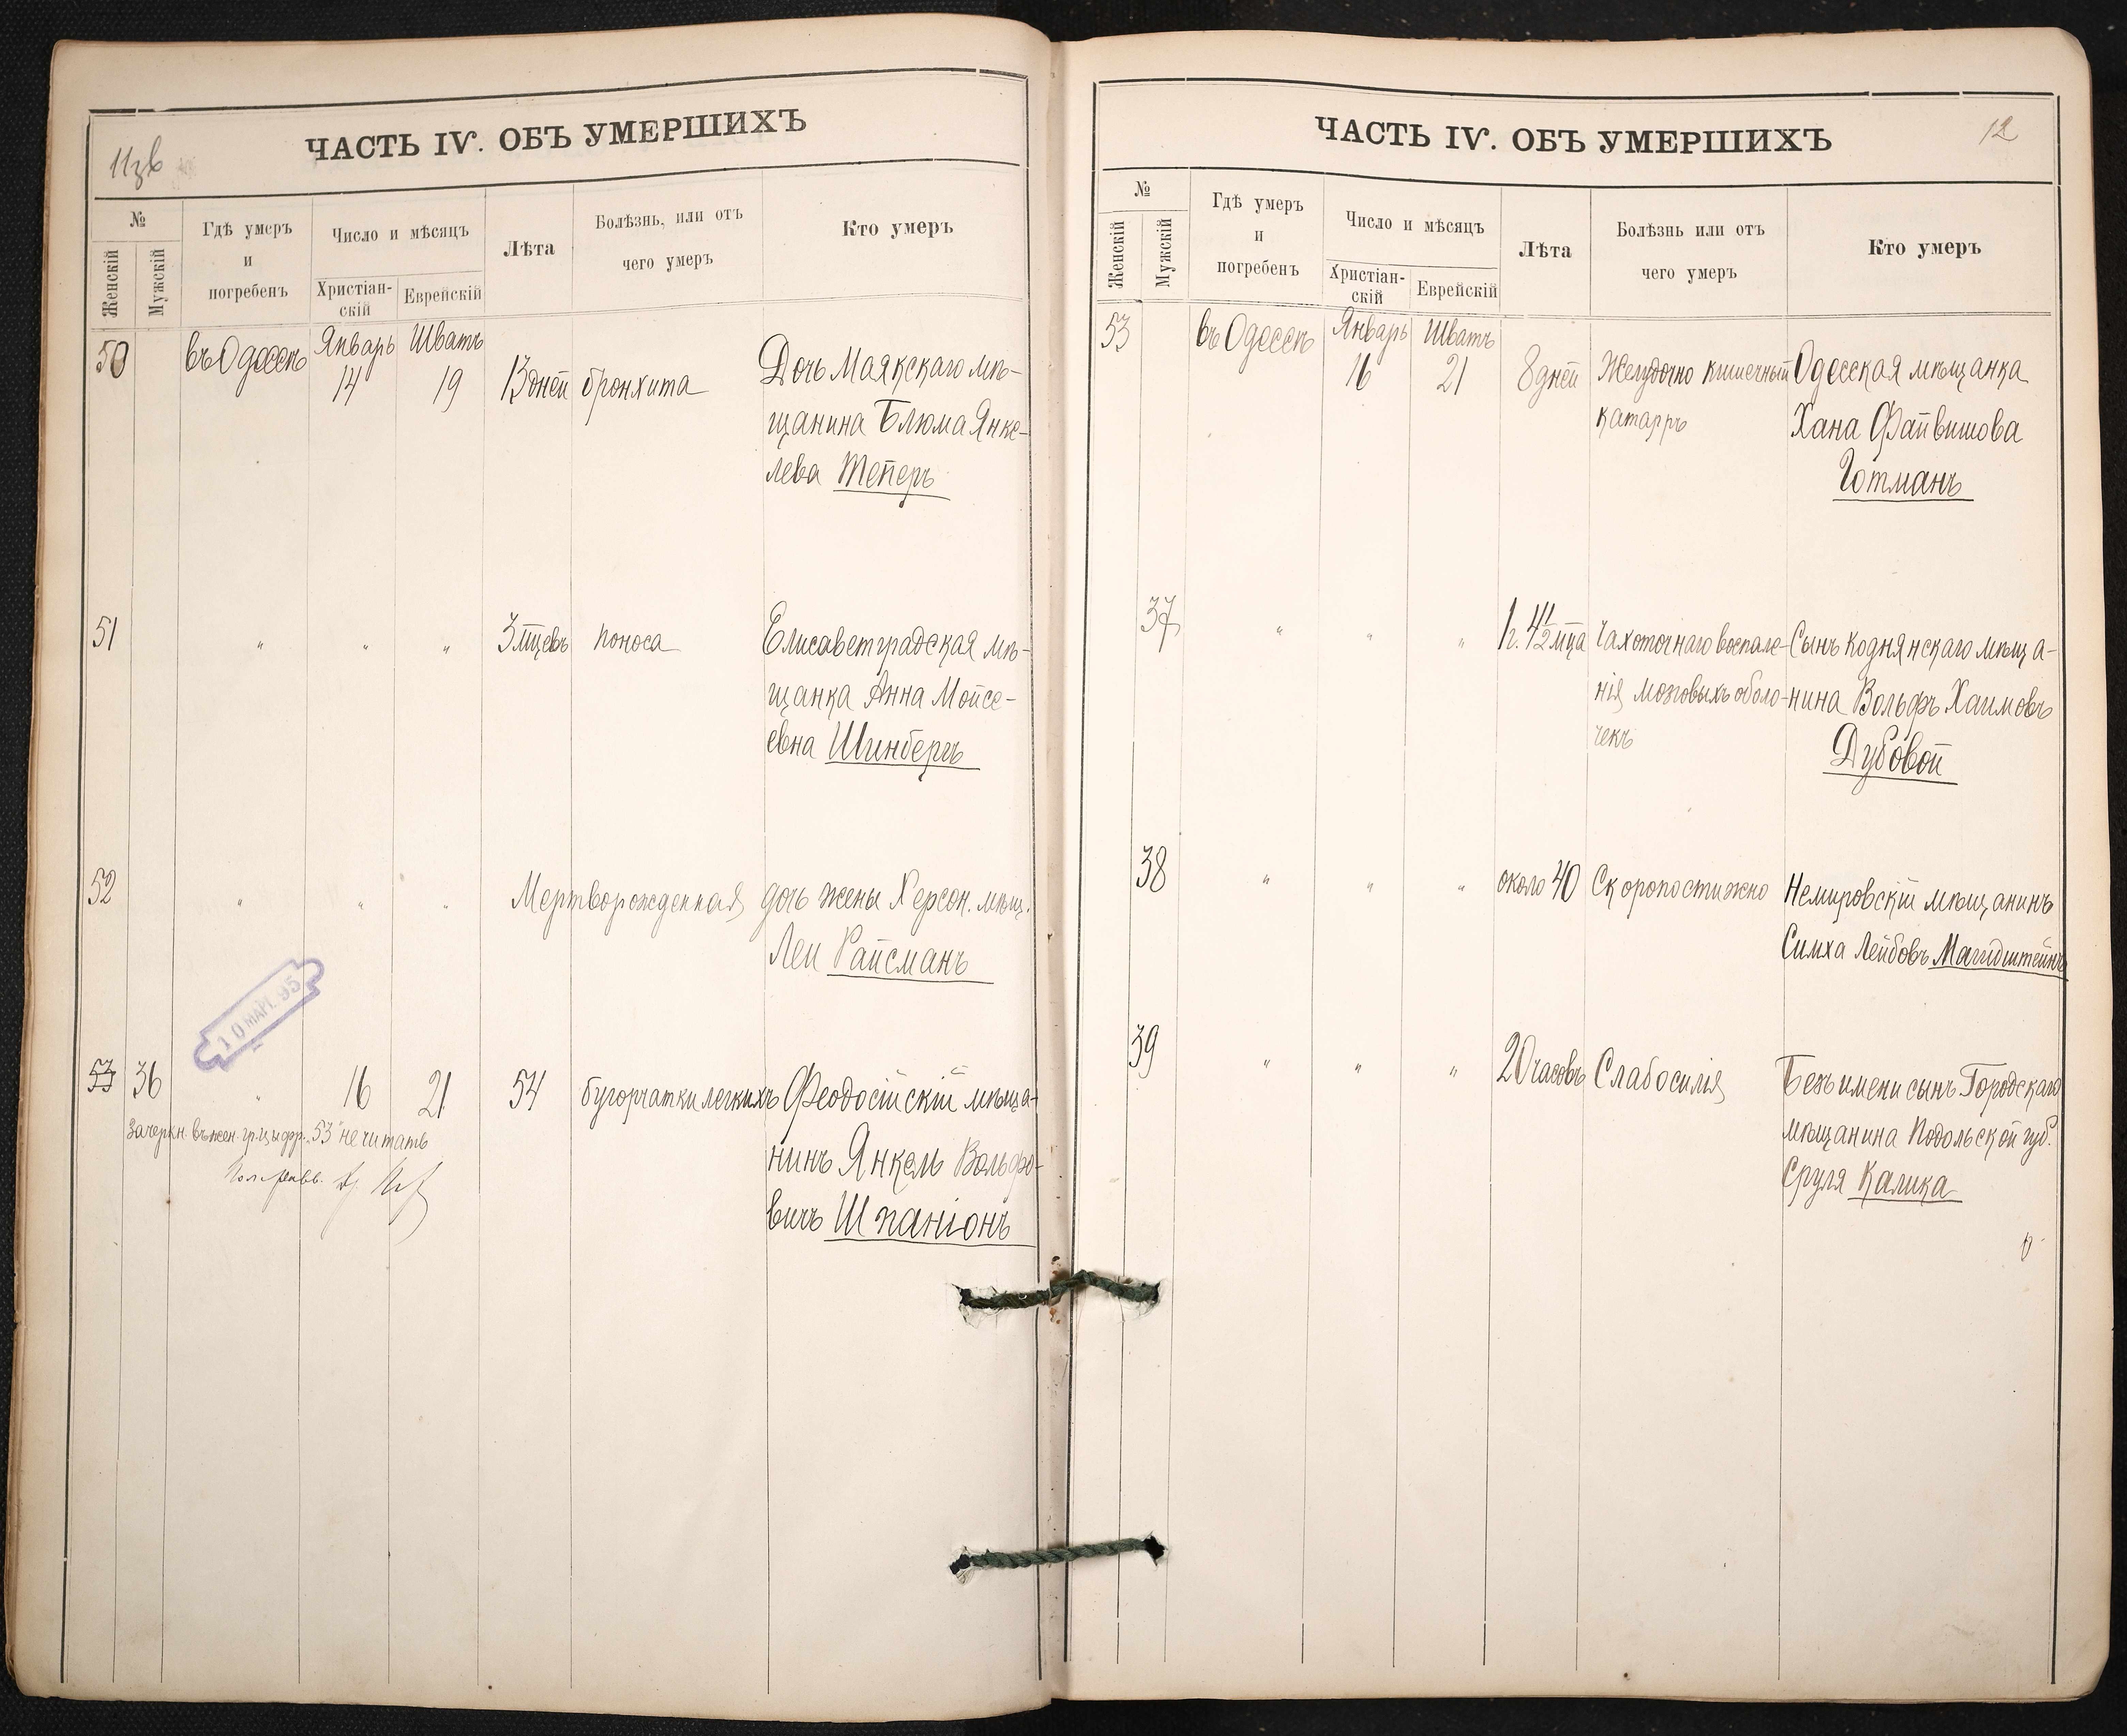 11зв
ЧАСТЬ IV. ОБЪ УМЕРШИХЪ
№
Женскій
Мужскій
Гдѣ умеръ
и
погребенъ
Число и мѣсяцъ
Христіан-
скій
Еврейскій
Лѣта
Болѣзнь, или отъ
чего умеръ
Кто умеръ
50 въ Одессѣ Январь Шватъ
14 19 13 дней бронхита Дочь Маякскаго мѣ-
щанина Блюма Янке-
лева Теперъ
51 " " " 3 мцевъ поноса Елисаветградская мѣ-
щанка Анна Мойсе-
евна Шинбергъ
52 " " " Мертворожденная дочь жены Херсон. мѣщ.
Леи Райсманъ
10 МАР. 95
53 36 " 16 21 54 бугорчатки легкихъ Феодосійскій мѣща-
нинъ Янкель Вольфо-
вичъ Шпаніонъ
Зачеркн. въ жен. гр. цыфр. "53" не читать
ЧАСТЬ IV. ОБЪ УМЕРШИХЪ
12
№
Женскій
Мужскій
Гдѣ умеръ
и
погребенъ
Число и мѣсяцъ
Христіан-
скій
Еврейскій
Лѣта
Болѣзнь или отъ
чего умеръ
Кто умеръ
53 въ Одессѣ Январь Шватъ
16 21 8 дней Желудочно кишечный Одесская мѣщанка
катарръ Хана Файвишова
Готманъ
37 " " " 1 г. 4 1/2 мца Чахоточнаго воспале- Сынъ Коднянскаго мѣща-
нія мозговыхъ оболо- нина Вольфъ Хаимовъ
чекъ Дубовой
38 " " " около 40 Скоропостижно Немировскій мѣщанинъ
Симха Лейбовъ Магидштейнъ
39 " " " 20 часовъ Слабосилія Безъ имени сынъ Городскаго
мѣщанина Подольской губ.
Сруля Калика